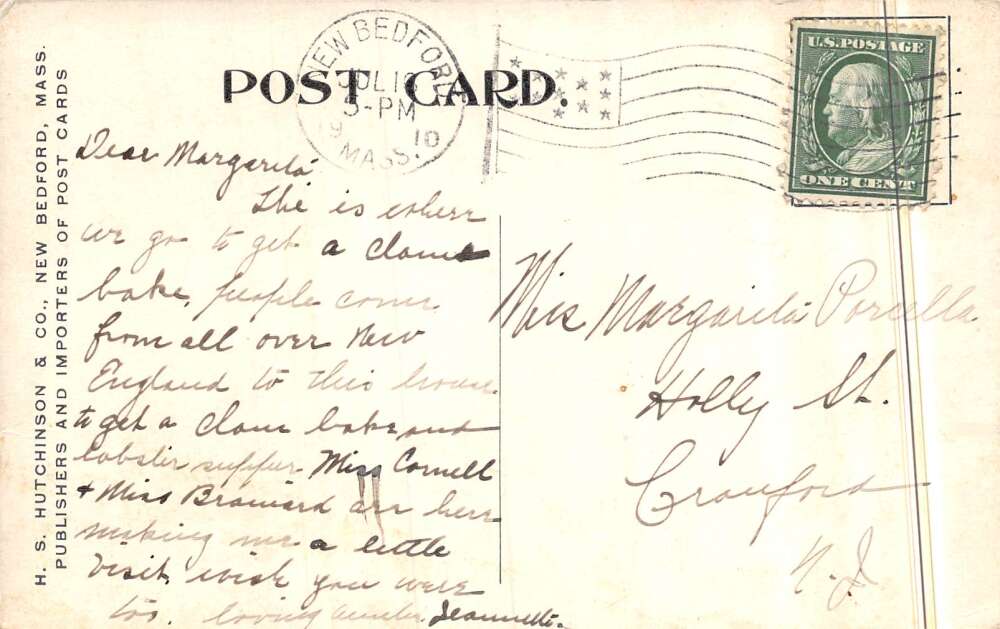 H. S. HUTCHINSON & CO., NEW BEDFORD, MASS.
PUBLISHERS AND IMPORTERS OF POST CARDS
POST CARD.
NEW BEDFORD
JUL 1
5-PM
19 10
MASS.
U.S. POSTAGE
ONE CENT
Dear Margarita
The is where
we go to get a clam
bake, people come
from all over New
England to this house
to get a clam bake and
lobster supper. Miss Cornell
+ Miss Brainard are here
making me a little
visit, wish you were
too. loving Jeannette.
Miss Margarita Porcella
Holly St.
Cranford
N.J.